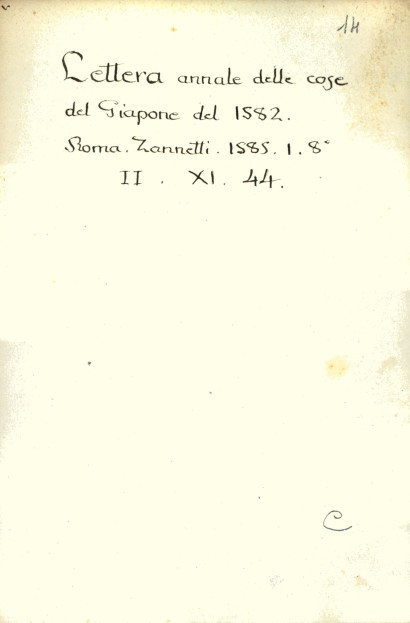 14
Lettera annale delle cose
del Giapone del 1582.
Roma. Zannetti. 1585. 1. 8°
II . XI. 44.
C